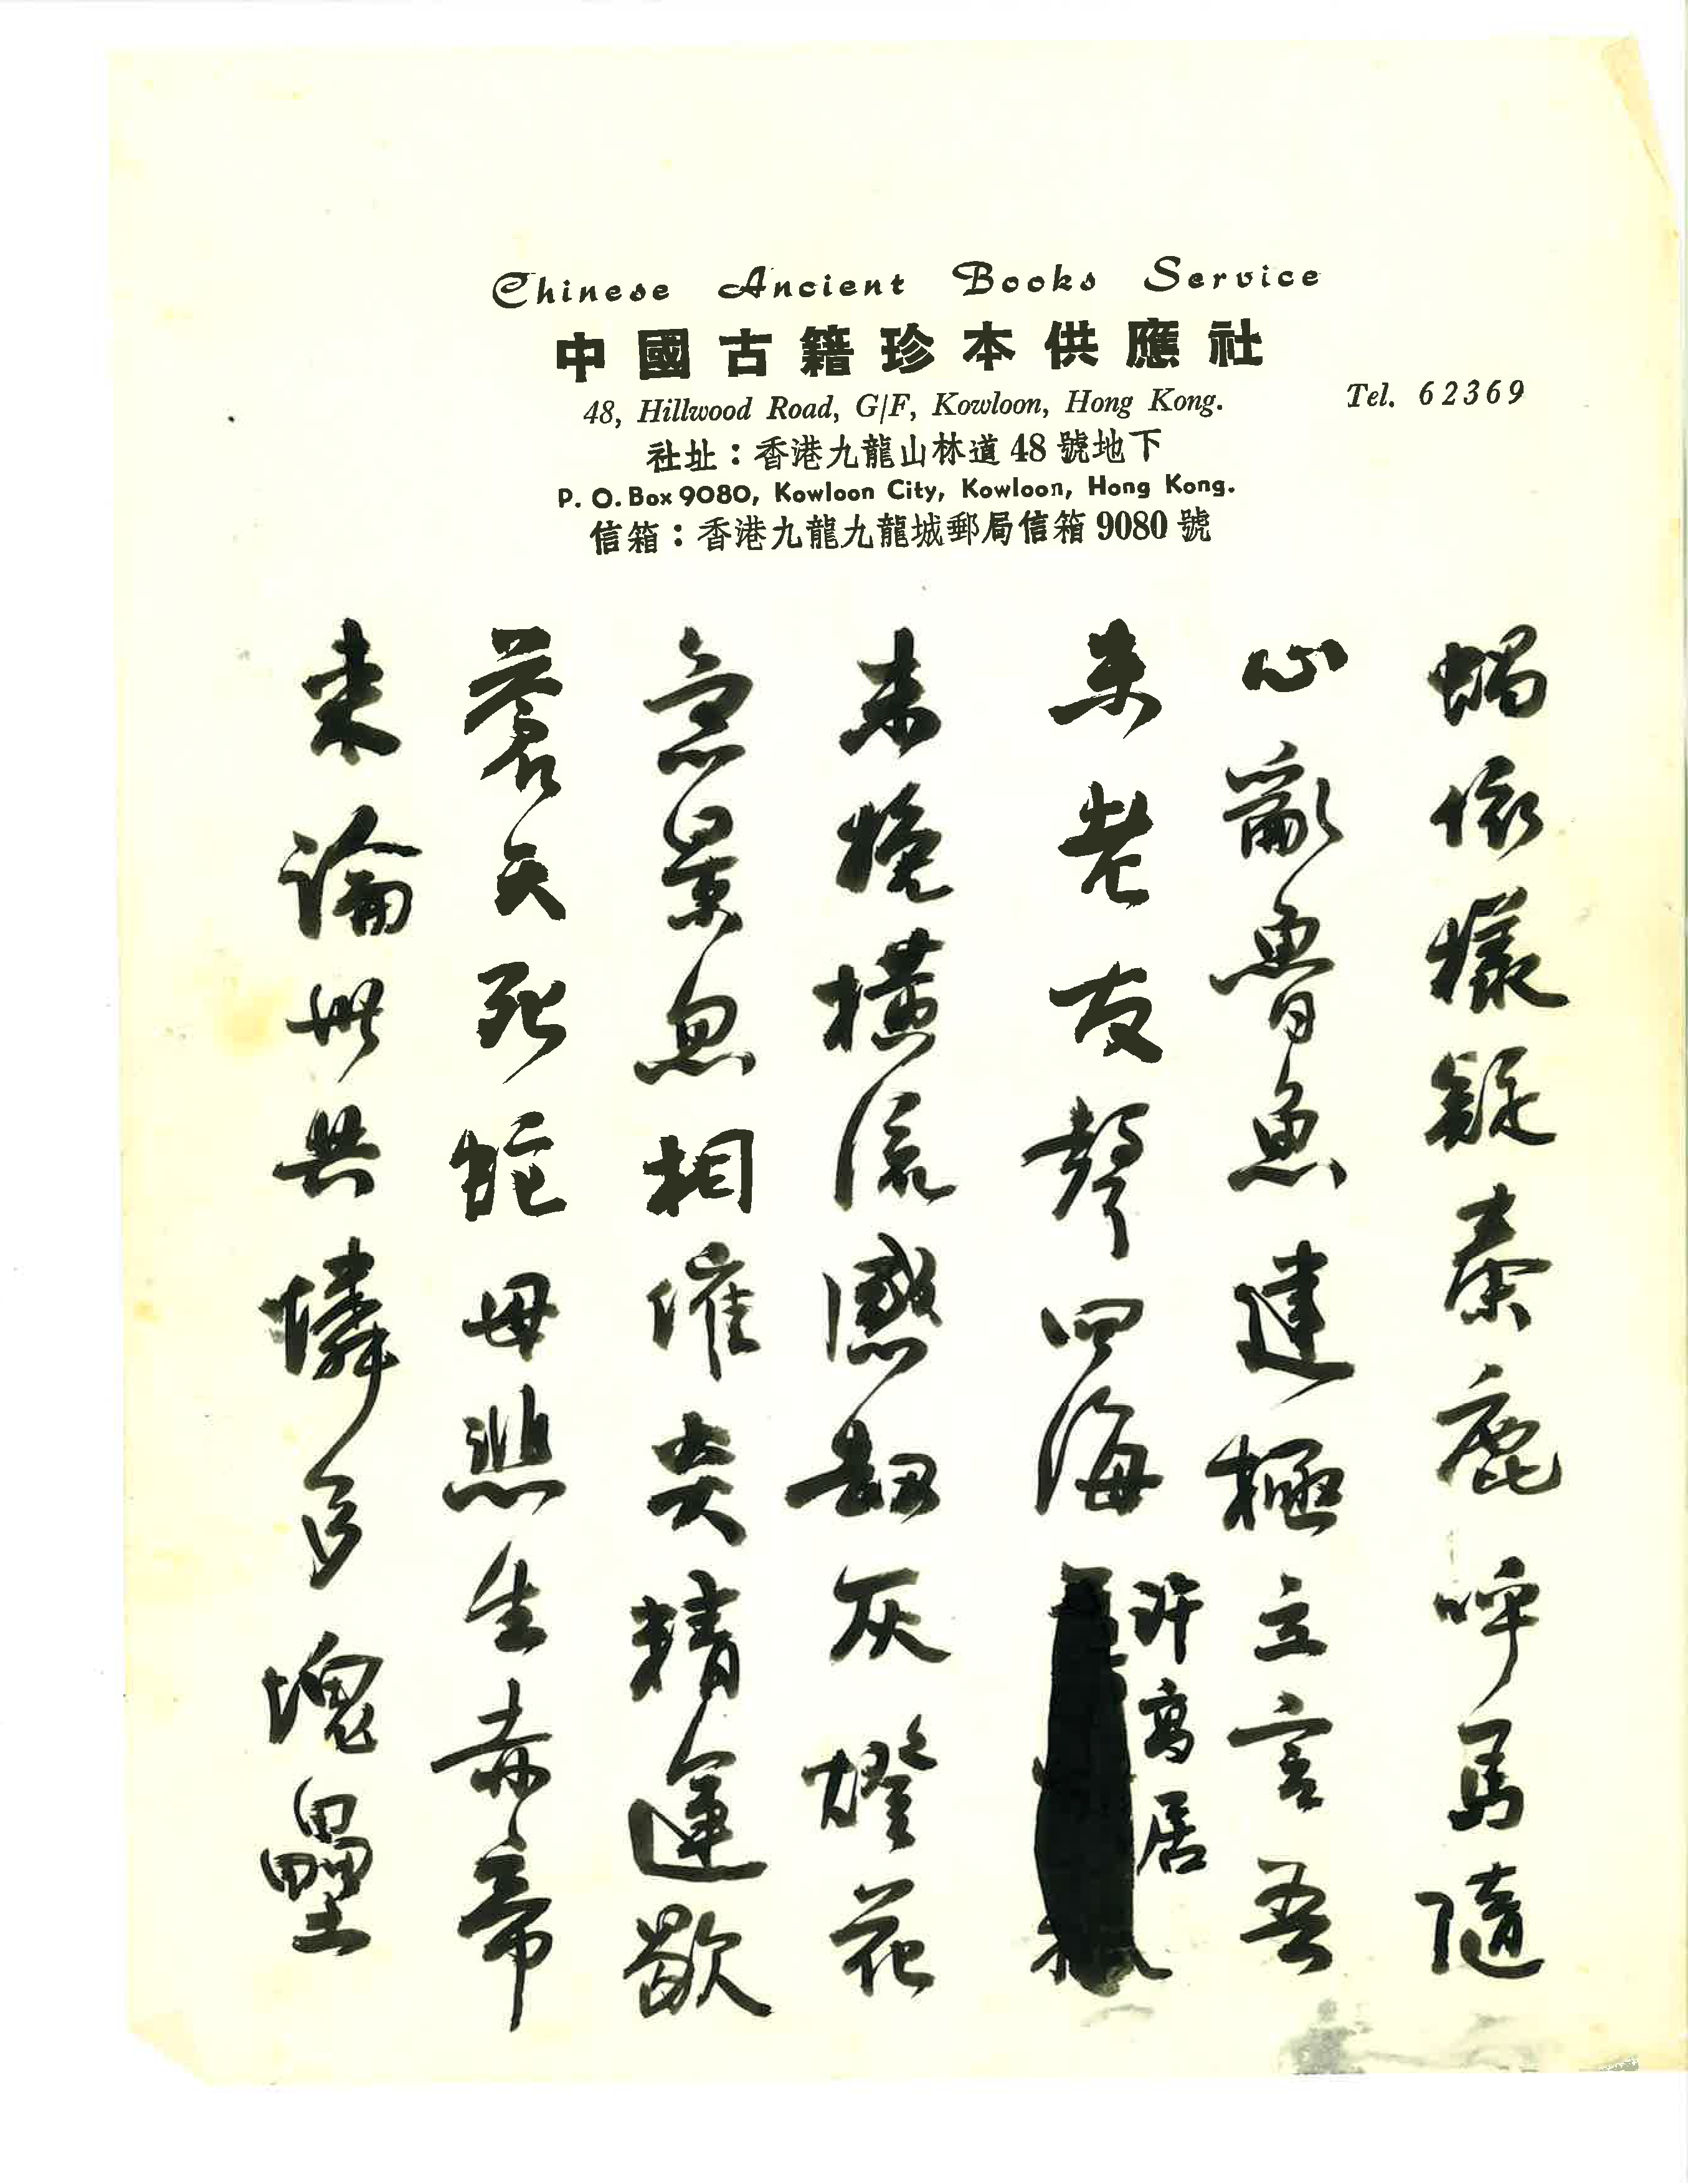 Chinese Ancient Books Service
中國古籍珍本供應社
48, Hillwood Road, G/F, Kowloon, Hong Kong.
Tel. 62369
社址：香港九龍山林道48號地下
P. O. Box 9080, Kowloon City, Kowloon, Hong Kong.
信箱：香港九龍九龍城郵局信箱9080號
蝸依樣疑秦鹿呼馬隨
心亂魯魚建極立言吾
未老友聲四海許寓居
未晚橫流感劫灰燈花
急景忽相催炎精運歇
蒼天死蛇母悲生赤帝
來論世共憐多塊壘